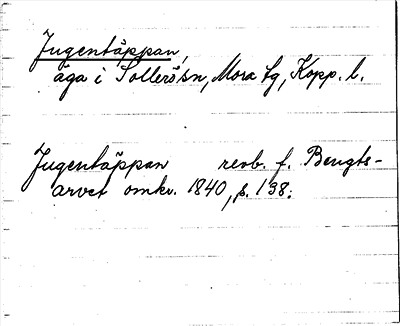 Jugentäppan,
äga i Sollerö sn, Mora tg, Kopp. l.
Jugentäppan revb. f. Bengts-
arvet omkr. 1840, s. 138: